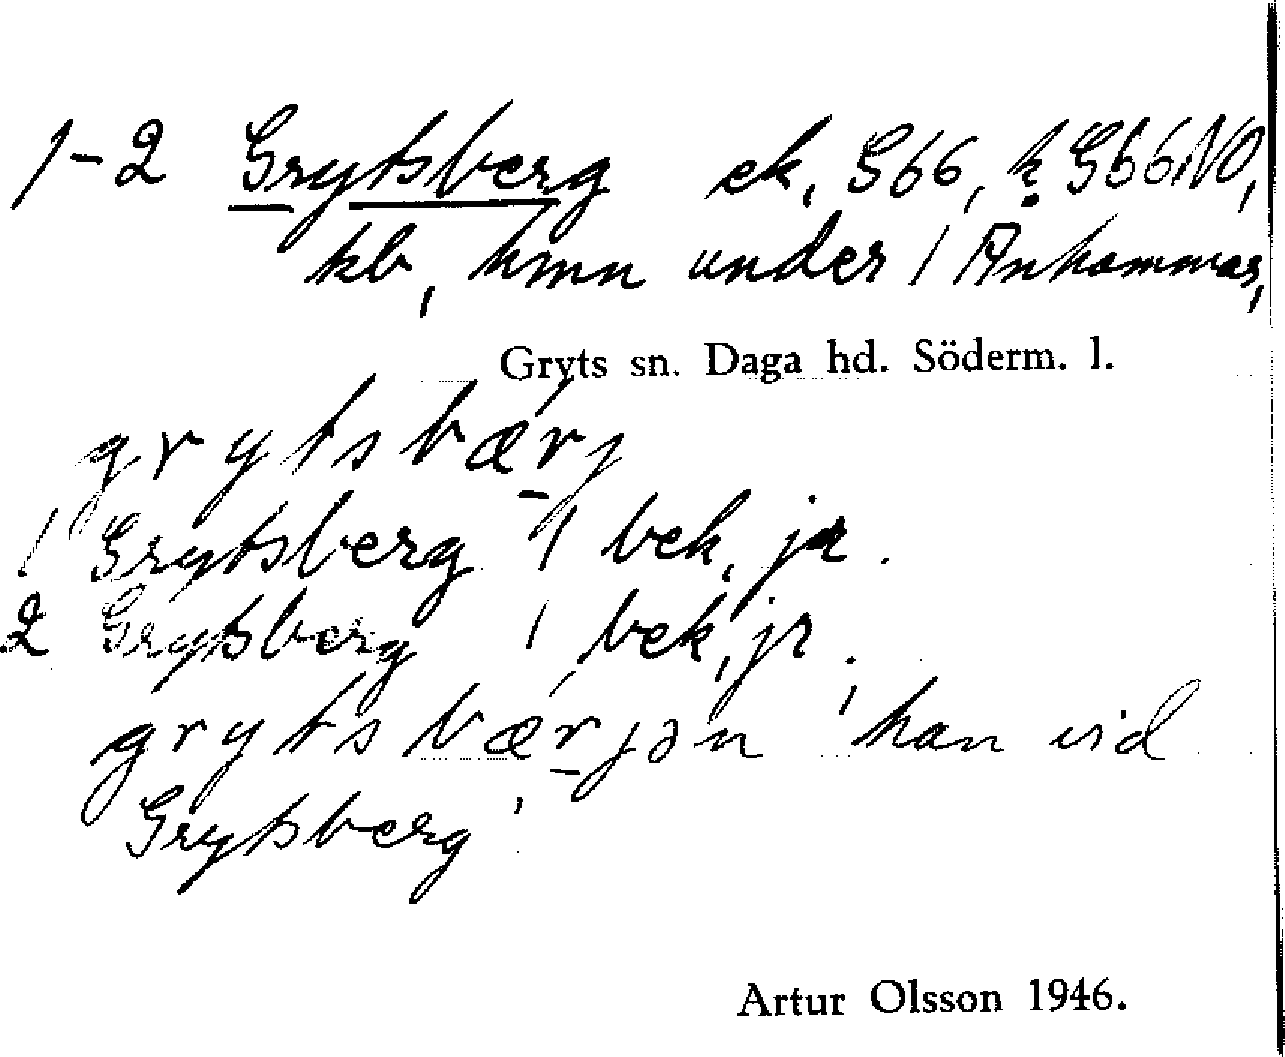 1-2 Grytsberg ek, G66, k G66NO,
kb, hmn under 1 Anhammar,
Gryts sn. Daga hd. Söderm. l.
grytsbærj
1 Grytsberg 1 bek, jr.
2 Grytsberg 1 bek, jr.
grytsbærjən 'han vid
Grytsberg'
Artur Olsson 1946.